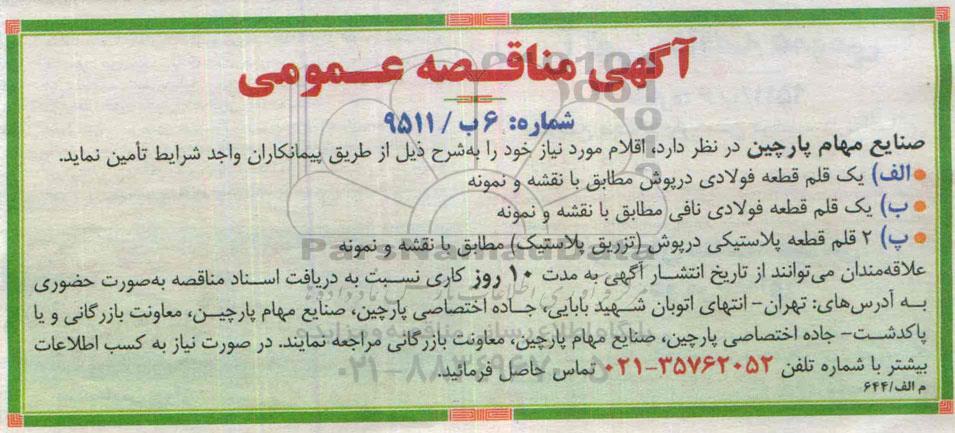 آگهی مناقصه عمومی
شماره: ۶ ب / ۹۵۱۱
صنایع مهام پارچین در نظر دارد، اقلام مورد نیاز خود را به‌شرح ذیل از طریق پیمانکاران واجد شرایط تأمین نماید.
الف) یک قلم قطعه فولادی درپوش مطابق با نقشه و نمونه
ب) یک قلم قطعه فولادی نافی مطابق با نقشه و نمونه
پ) ۲ قلم قطعه پلاستیکی درپوش (تزریق پلاستیک) مطابق با نقشه و نمونه
علاقه‌مندان می‌توانند از تاریخ انتشار آگهی به مدت ۱۰ روز کاری نسبت به دریافت اسناد مناقصه به‌صورت حضوری
به آدرس‌های: تهران- انتهای اتوبان شهید بابایی، جاده اختصاصی پارچین، صنایع مهام پارچین، معاونت بازرگانی و یا
پاکدشت- جاده اختصاصی پارچین، صنایع مهام پارچین، معاونت بازرگانی مراجعه نمایند. در صورت نیاز به کسب اطلاعات
بیشتر با شماره تلفن ۳۵۷۶۲۰۵۲-۰۲۱ تماس حاصل فرمائید.
م الف/۶۴۴
ParsNamadData
پایگاه اطلاع رسانی مناقصه و مزایده
۰۲۱-۸۸۳۴۹۶۷۰-۵